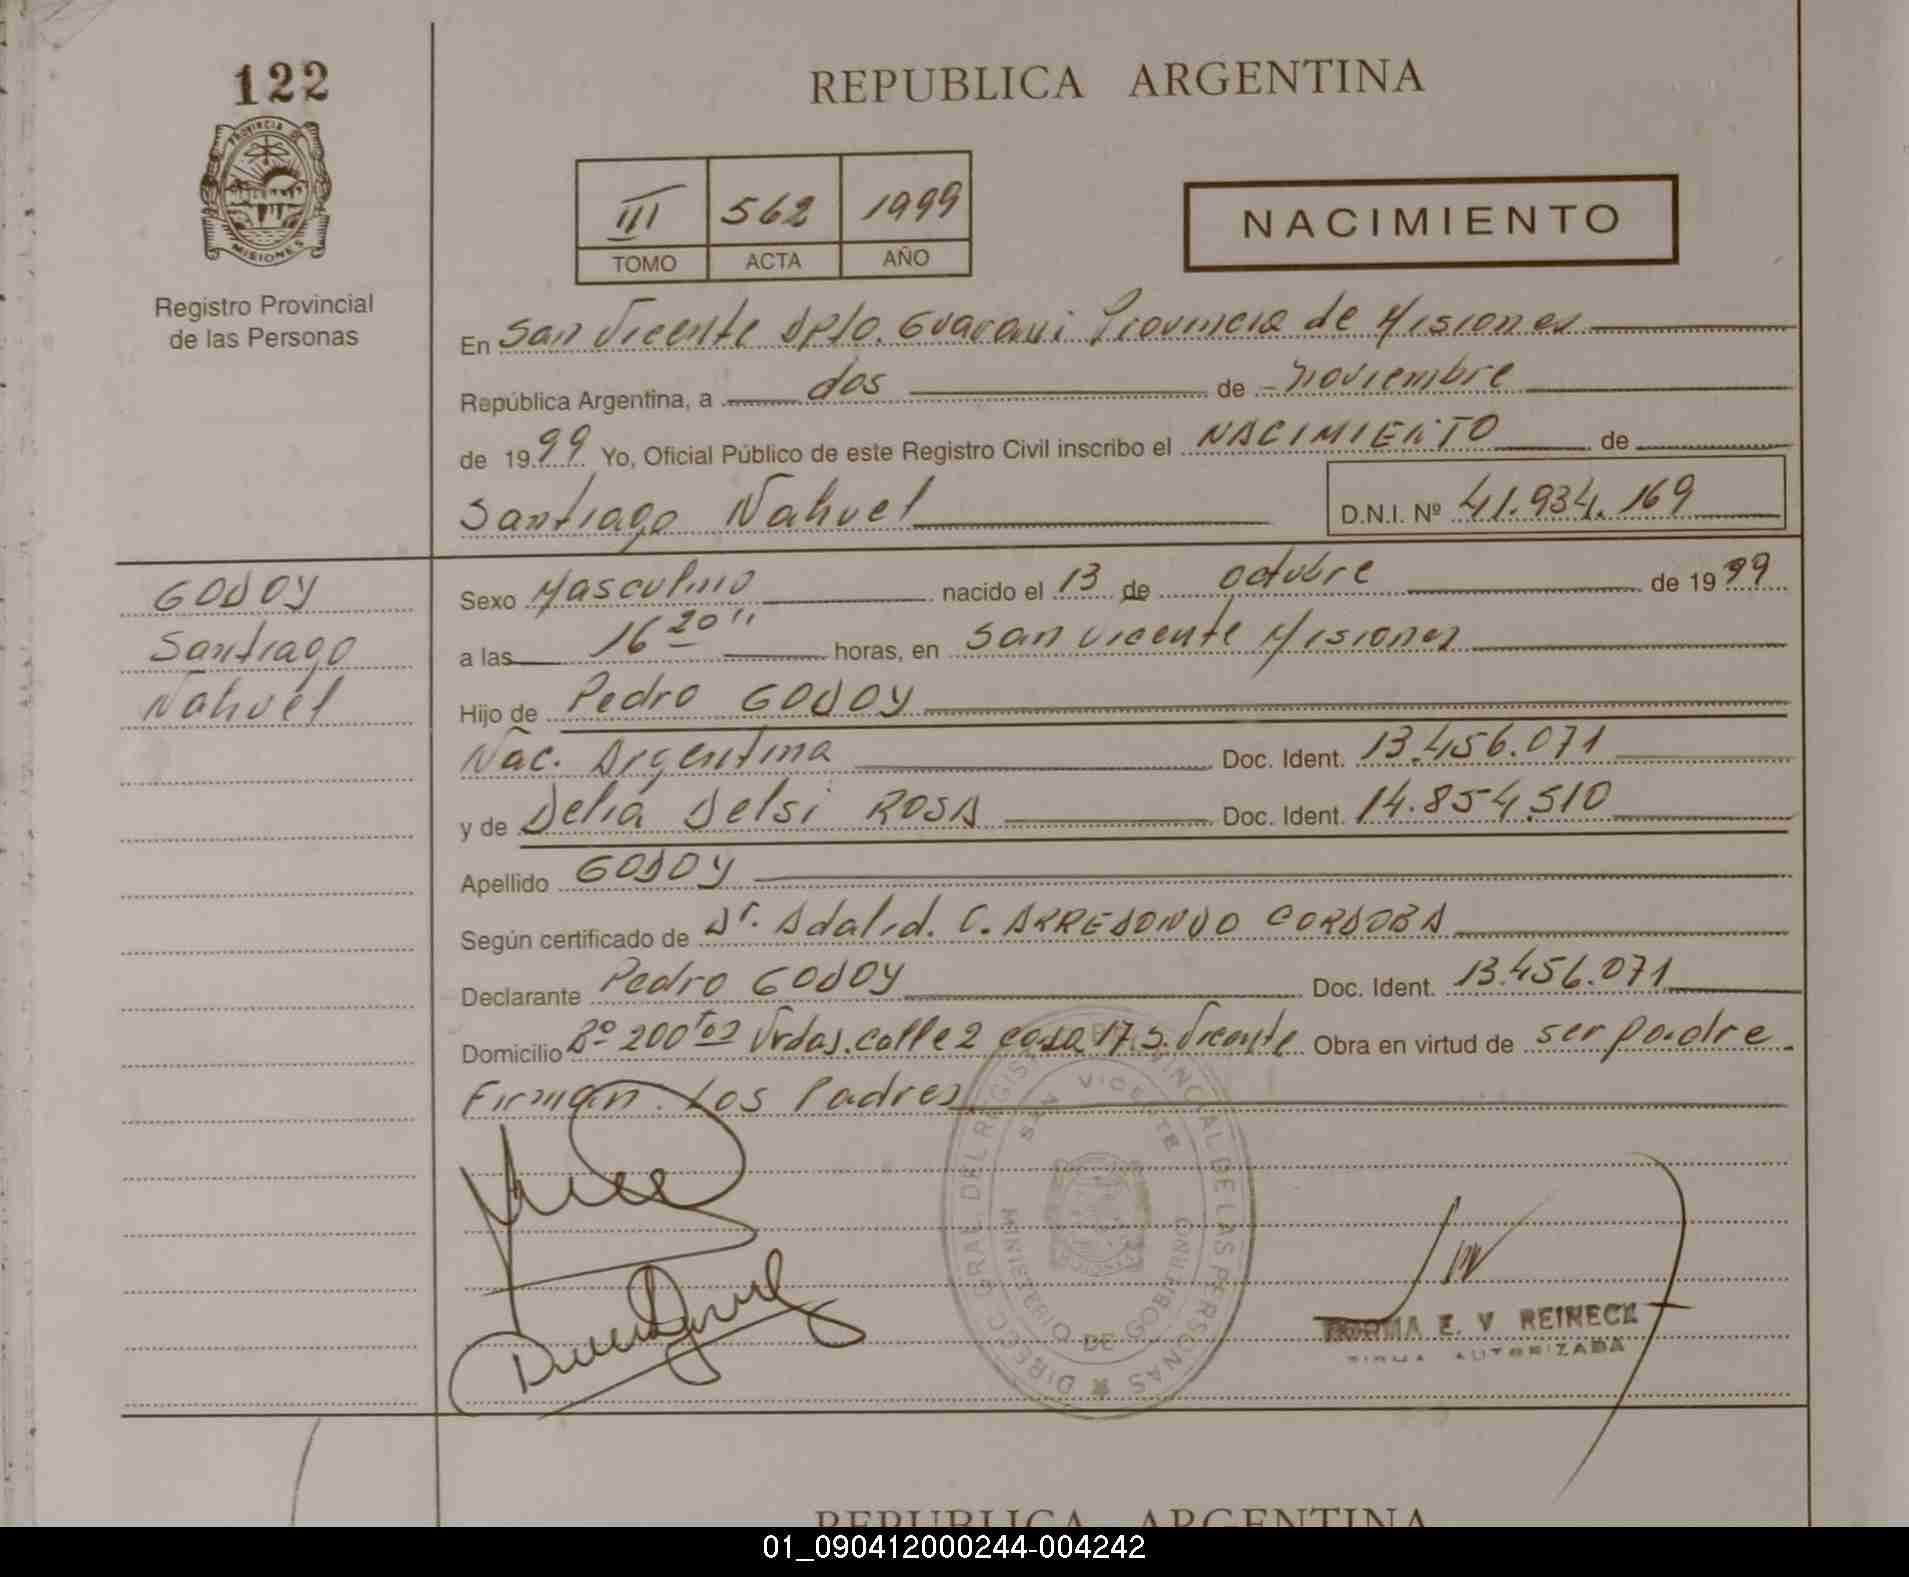 122
PROVINCIA DE
MISIONES
Registro Provincial
de las Personas
REPUBLICA ARGENTINA
III 562 1999
TOMO ACTA AÑO
NACIMIENTO
En San Vicente Dpto. Guaraní Provincia de Misiones
República Argentina, a dos de noviembre
de 1999 Yo, Oficial Público de este Registro Civil inscribo el NACIMIENTO de
Santiago Nahuel D.N.I. Nº 41.934.169
GODOY
Santiago
Nahuel
Sexo Masculino nacido el 13 de octubre de 1999
a las 16 20 horas, en San Vicente Misiones
Hijo de Pedro GODOY
Nac. Argentina Doc. Ident. 13.456.071
y de Delia Delsi ROSA Doc. Ident. 14.854.510
Apellido GODOY
Según certificado de Dr. Adalid. C. ARREDONDO CORDOBA
Declarante Pedro GODOY Doc. Ident. 13.456.071
Domicilio Bº 200 Vvdas. calle 2 casa 17 S. Vicente Obra en virtud de ser padre.
Firman. Los Padres
DIRECC GRAL. DEL REGISTRO PROVINCIAL DE LAS PERSONAS
SAN VICENTE
MINISTERIO DE GOBIERNO
NORMA E. V. REINECK
FIRMA AUTORIZADA
REPUBLICA ARGENTINA
01_090412000244-004242